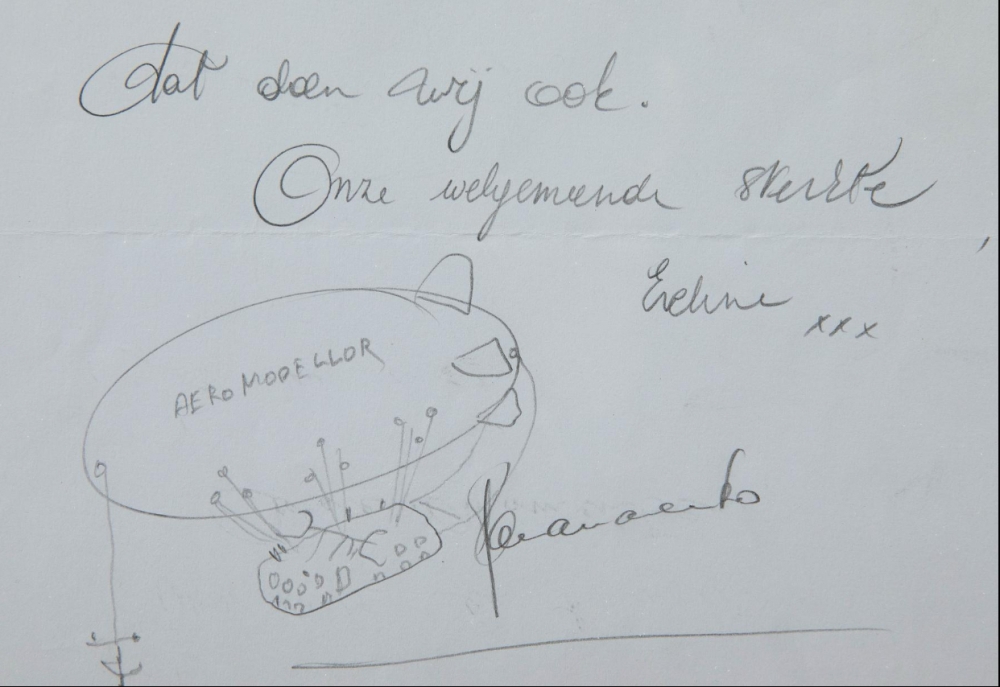 dat doen wij ook.
Onze welgemeende sterkte,
Eveline xxx
AEROMODELLOR
Panamarenko